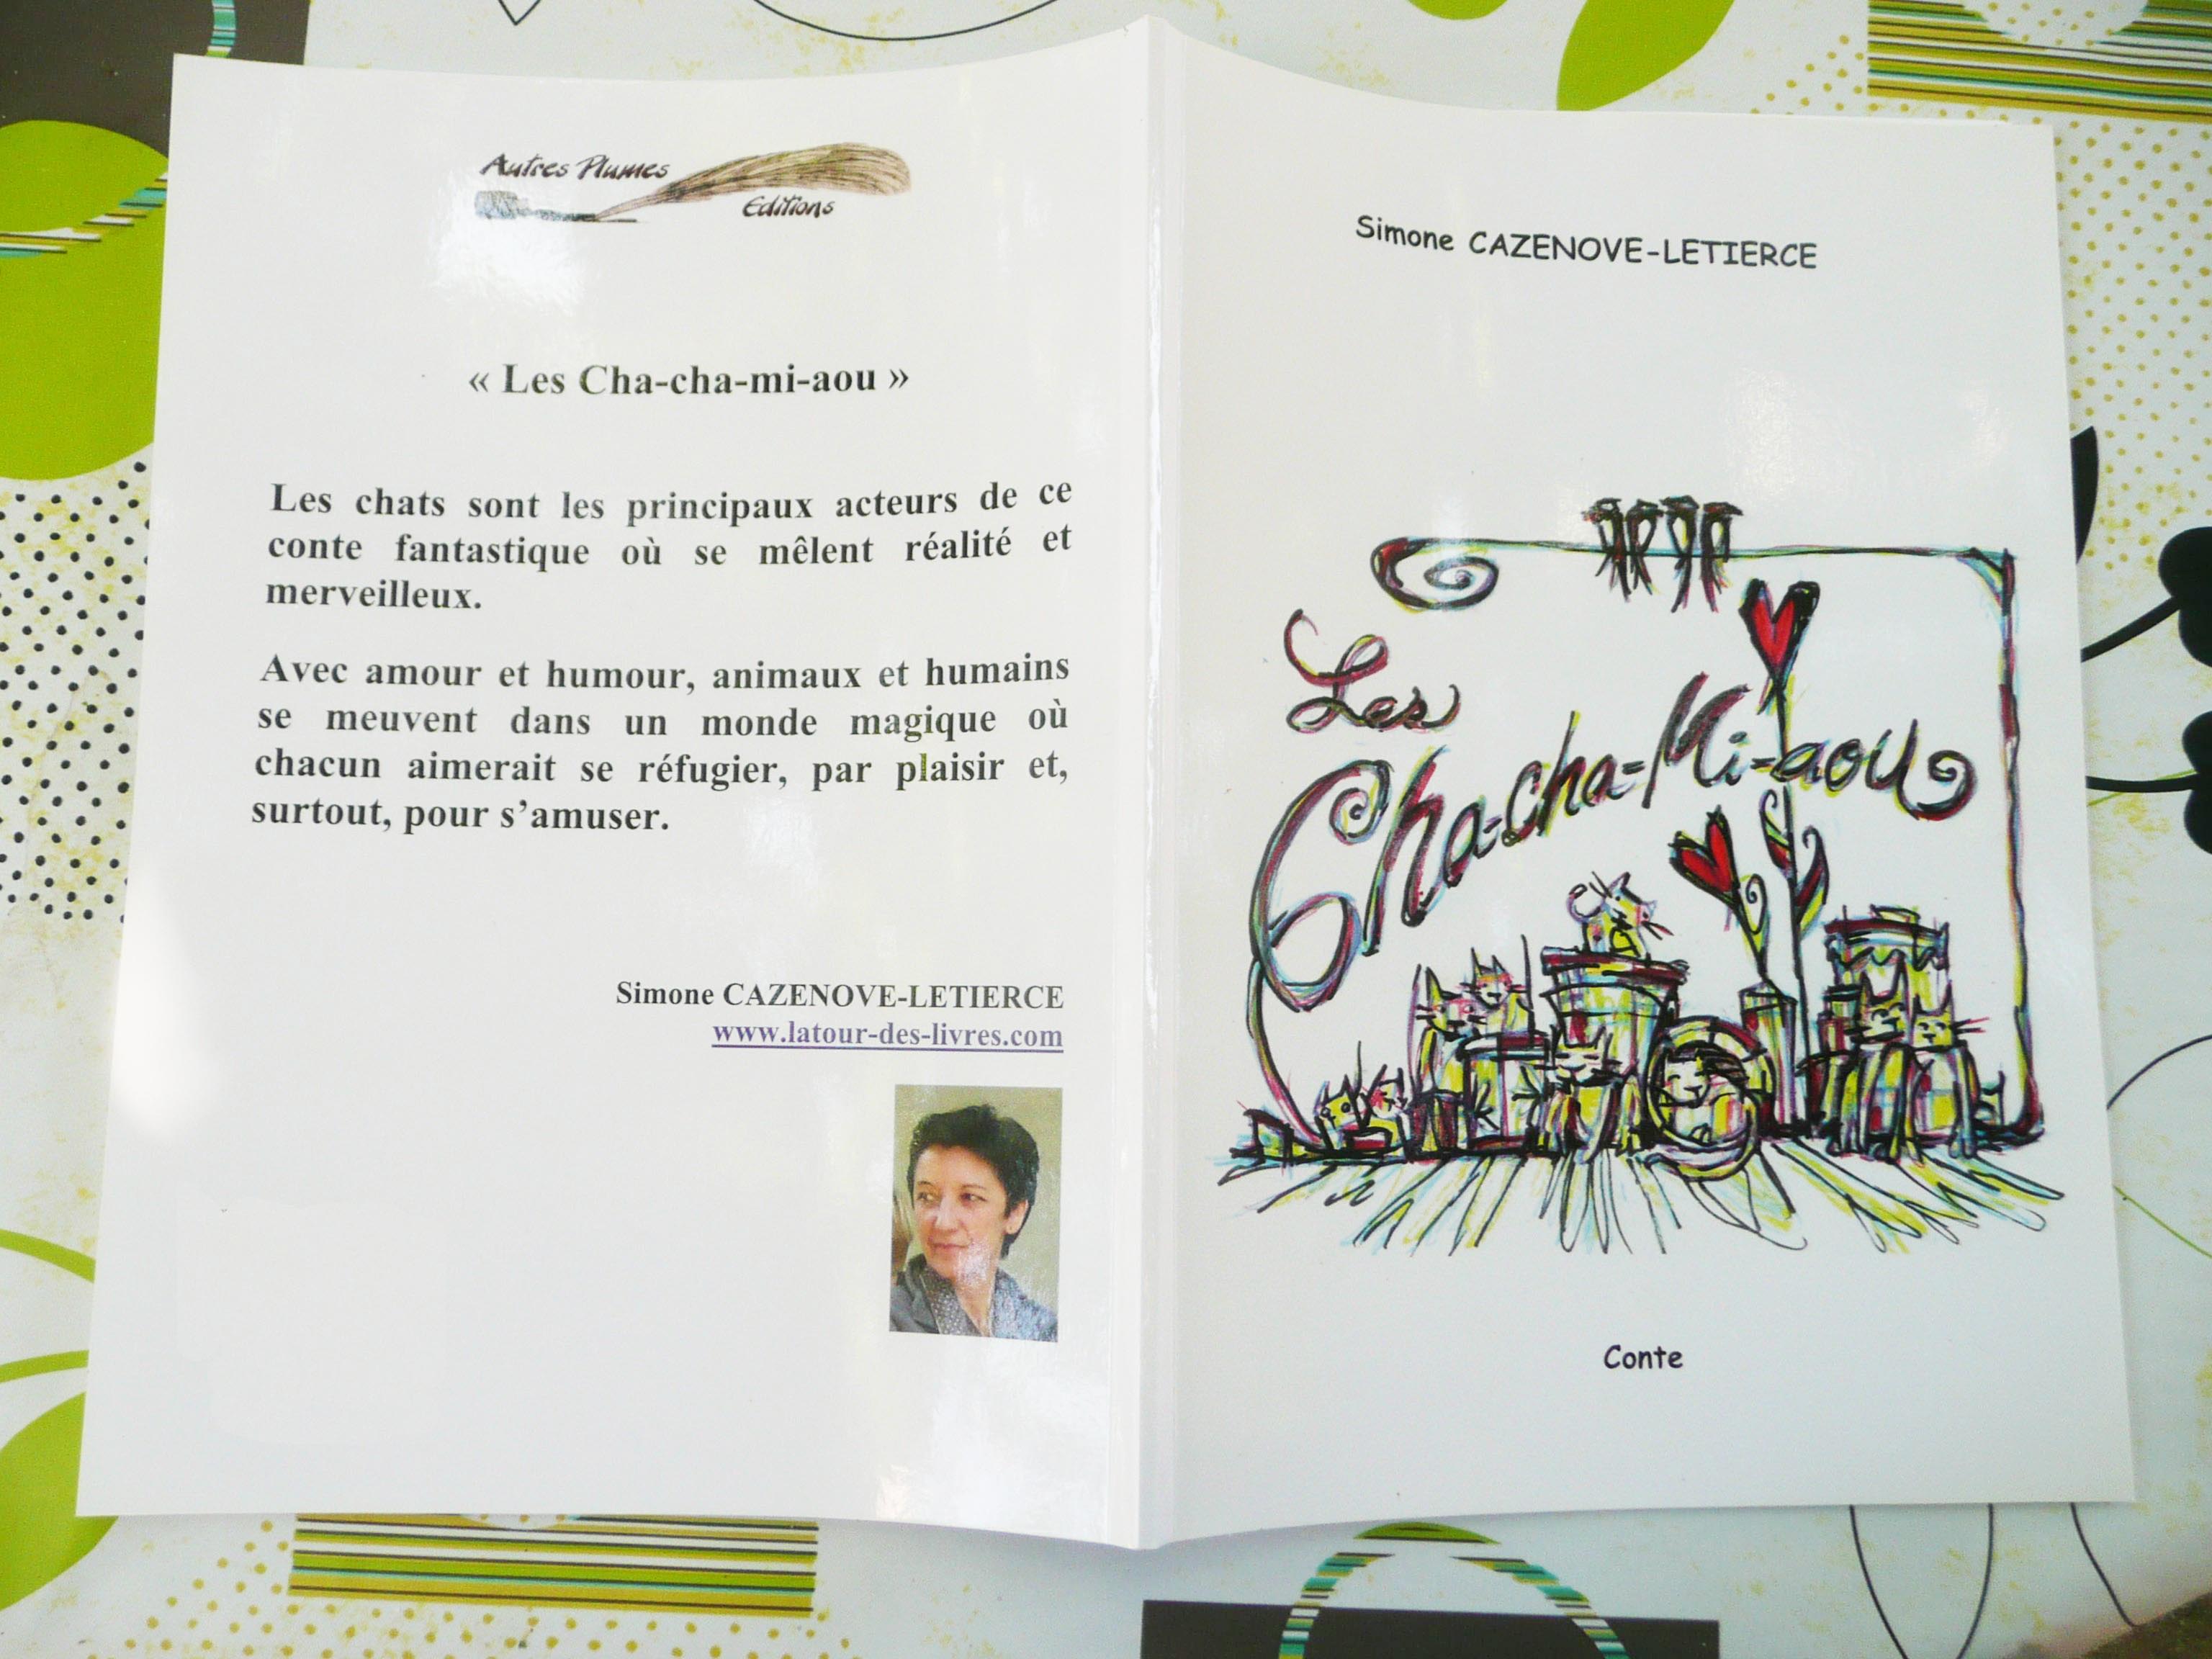 Autres Plumes
Editions
« Les Cha-cha-mi-aou »
Les chats sont les principaux acteurs de ce
conte fantastique où se mêlent réalité et
merveilleux.
Avec amour et humour, animaux et humains
se meuvent dans un monde magique où
chacun aimerait se réfugier, par plaisir et,
surtout, pour s’amuser.
Simone CAZENOVE-LETIERCE
www.latour-des-livres.com
Simone CAZENOVE-LETIERCE
Les
Cha-cha-Mi-aou
Conte